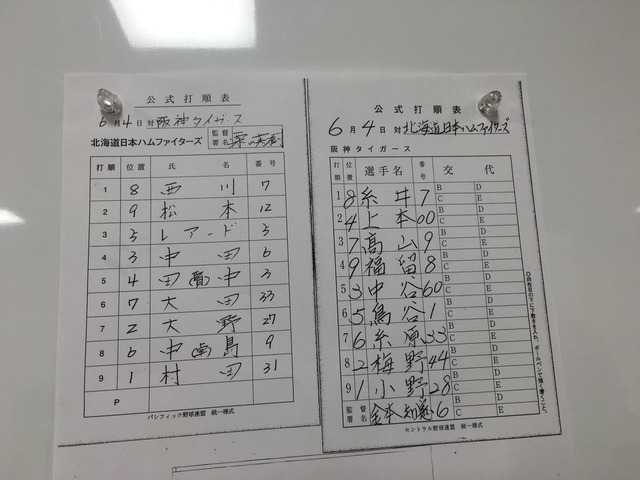 公式打順表
6月4日対阪神タイガース
北海道日本ハムファイターズ 監督署名
打順 位置 氏名 番号
1 8 西川 7
2 9 松本 12
3 5 レアード 5
4 3 中田 6
5 4 田(賢)中 3
6 7 大田 33
7 2 大野 27
8 6 中(卓)島 9
9 1 村田 31
P
パシフィック野球連盟 統一様式
公式打順表
6月4日対北海道日本ハムファイターズ
阪神タイガース
打順 位置 選手名 番号 交代
1 8 糸井 7 B D C E
2 4 上本 00 B D C E
3 7 高山 9 B D C E
4 9 福留 8 B D C E
5 3 中谷 60 B D C E
6 5 鳥谷 1 B D C E
7 6 糸原 33 B D C E
8 2 梅野 44 B D C E
9 1 小野 28 B D C E
監督署名 金本知憲 6 B D C E
セントラル野球連盟 統一様式